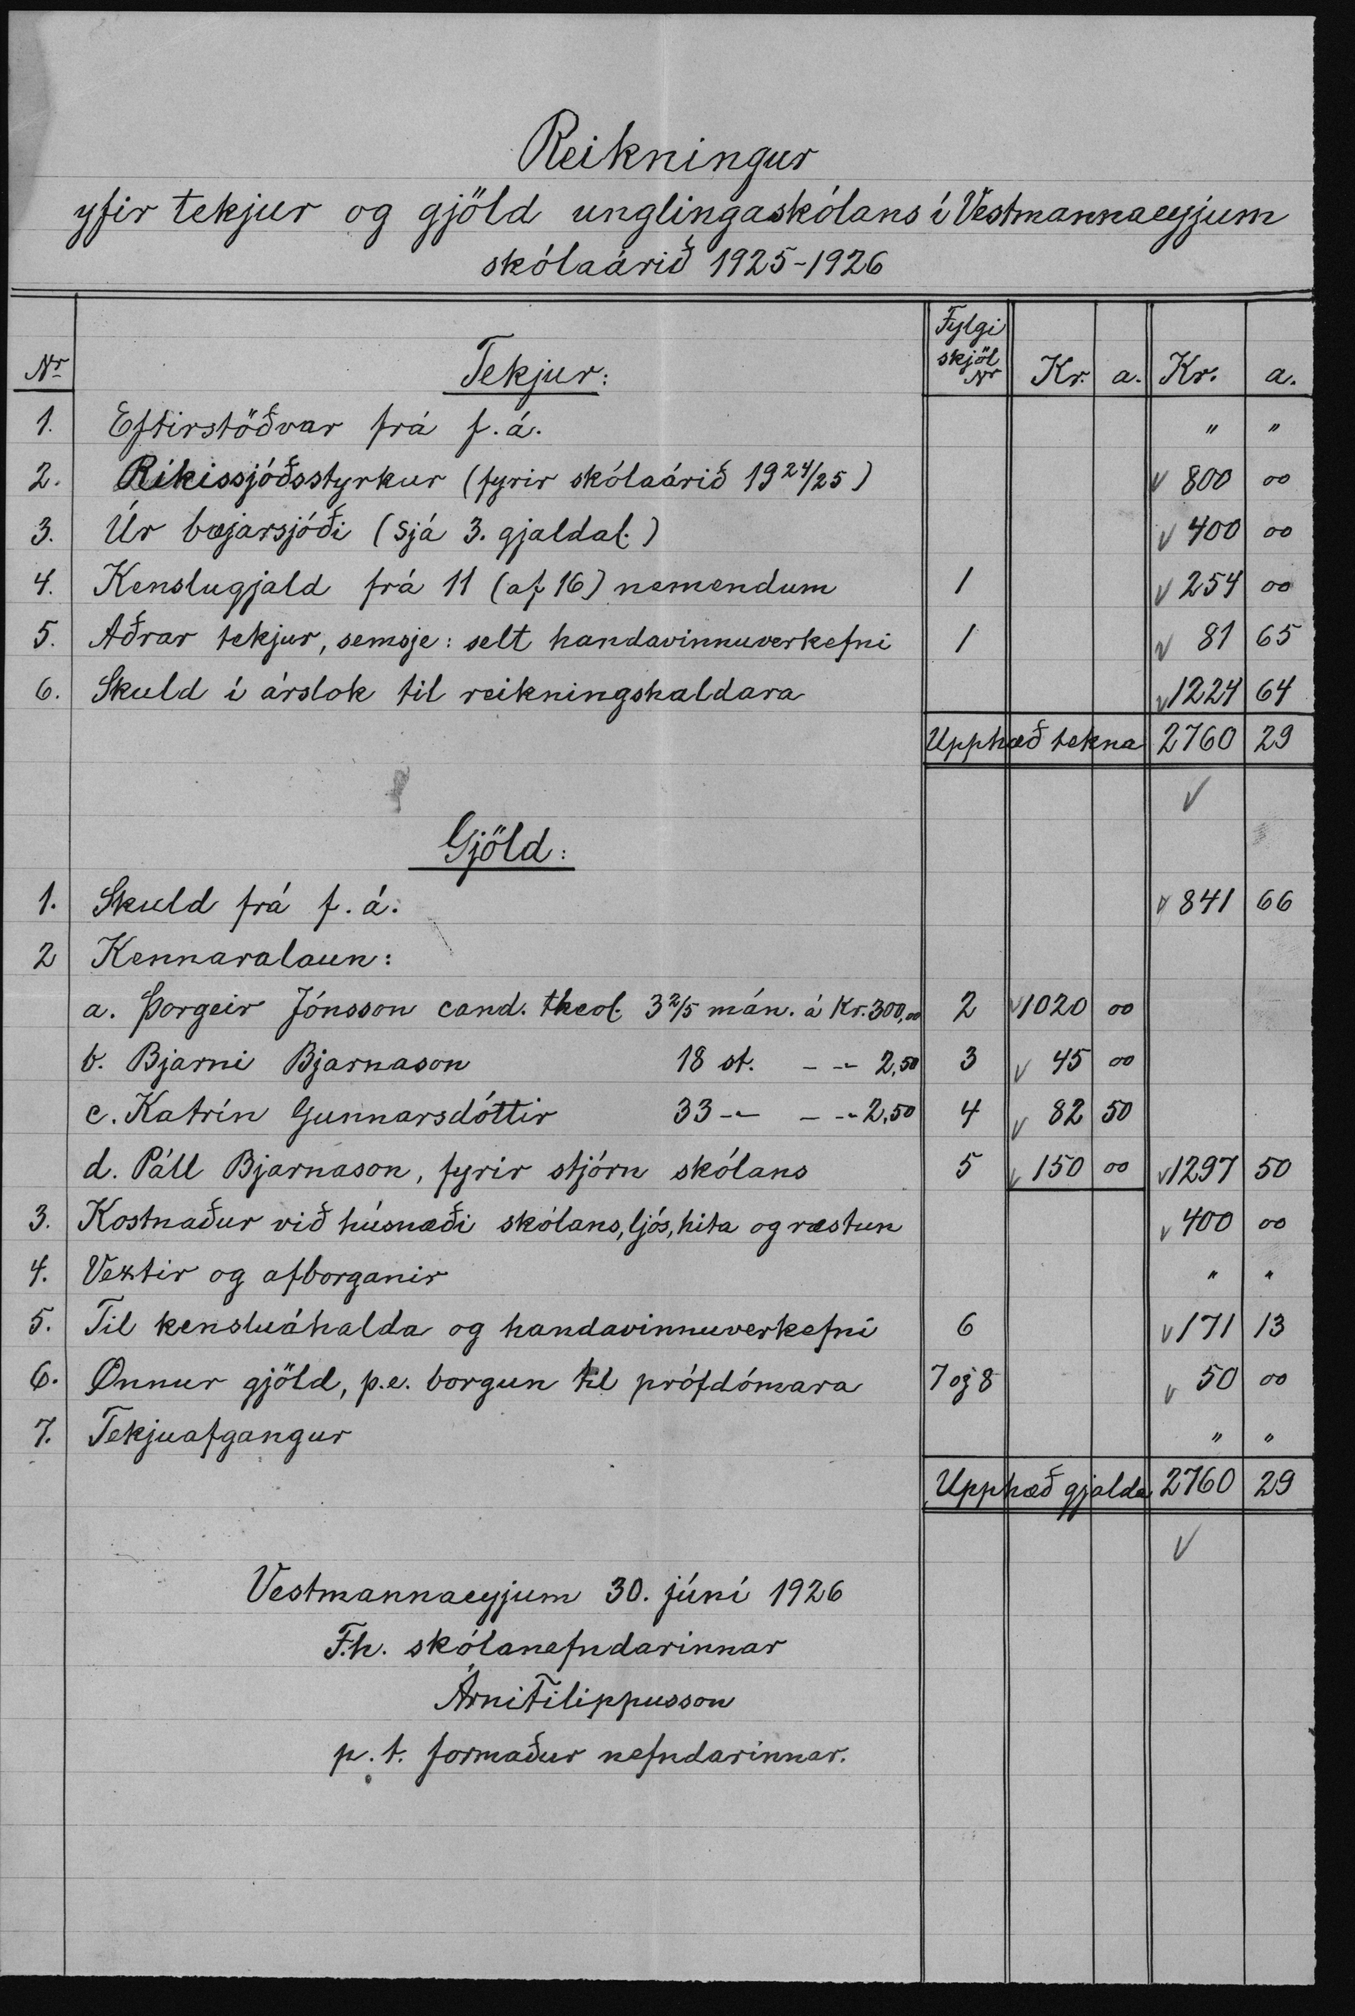 Reikningur
yfir tekjur og gjöld unglingaskólans í Vestmannaeyjum
skólaárið 1925-1926
Nr. Tekjur: Fylgiskjöl Nr Kr. a. Kr. a.
1. Eftirstöðvar frá f. á. " "
2. Ríkissjóðsstyrkur (fyrir skólaárið 1924/25) 800 00
3. Úr bæjarsjóði (sjá 3. gjaldal.) 400 00
4. Kenslugjald frá 11 (af 16) nemendum 1 254 00
5. Aðrar tekjur, semsje: selt handavinnuverkefni 1 81 65
6. Skuld í árslok til reikningshaldara 1224 64
Upphæð tekna 2760 29
Gjöld:
1. Skuld frá f. á. 841 66
2 Kennaralaun:
a. Þorgeir Jónsson cand. theol. 3 2/5 mán. á Kr. 300,00 2 1020 00
b. Bjarni Bjarnason 18 st. - -"- 2,50 3 45 00
c. Katrín Gunnarsdóttir 33 -"- - -"- 2,50 4 82 50
d. Páll Bjarnason, fyrir stjórn skólans 5 150 00 1297 50
3. Kostnaður við húsnæði skólans, ljós, hita og ræstun 400 00
4. Vextir og afborganir " "
5. Til kensluáhalda og handavinnuverkefni 6 171 13
6. Önnur gjöld, þ.e. borgun til prófdómara 7 og 8 50 00
7. Tekjuafgangur " "
Upphæð gjalda 2760 29
Vestmannaeyjum 30. júní 1926
F.h. skólanefndarinnar
Árni Filippusson
p. t. formaður nefndarinnar.